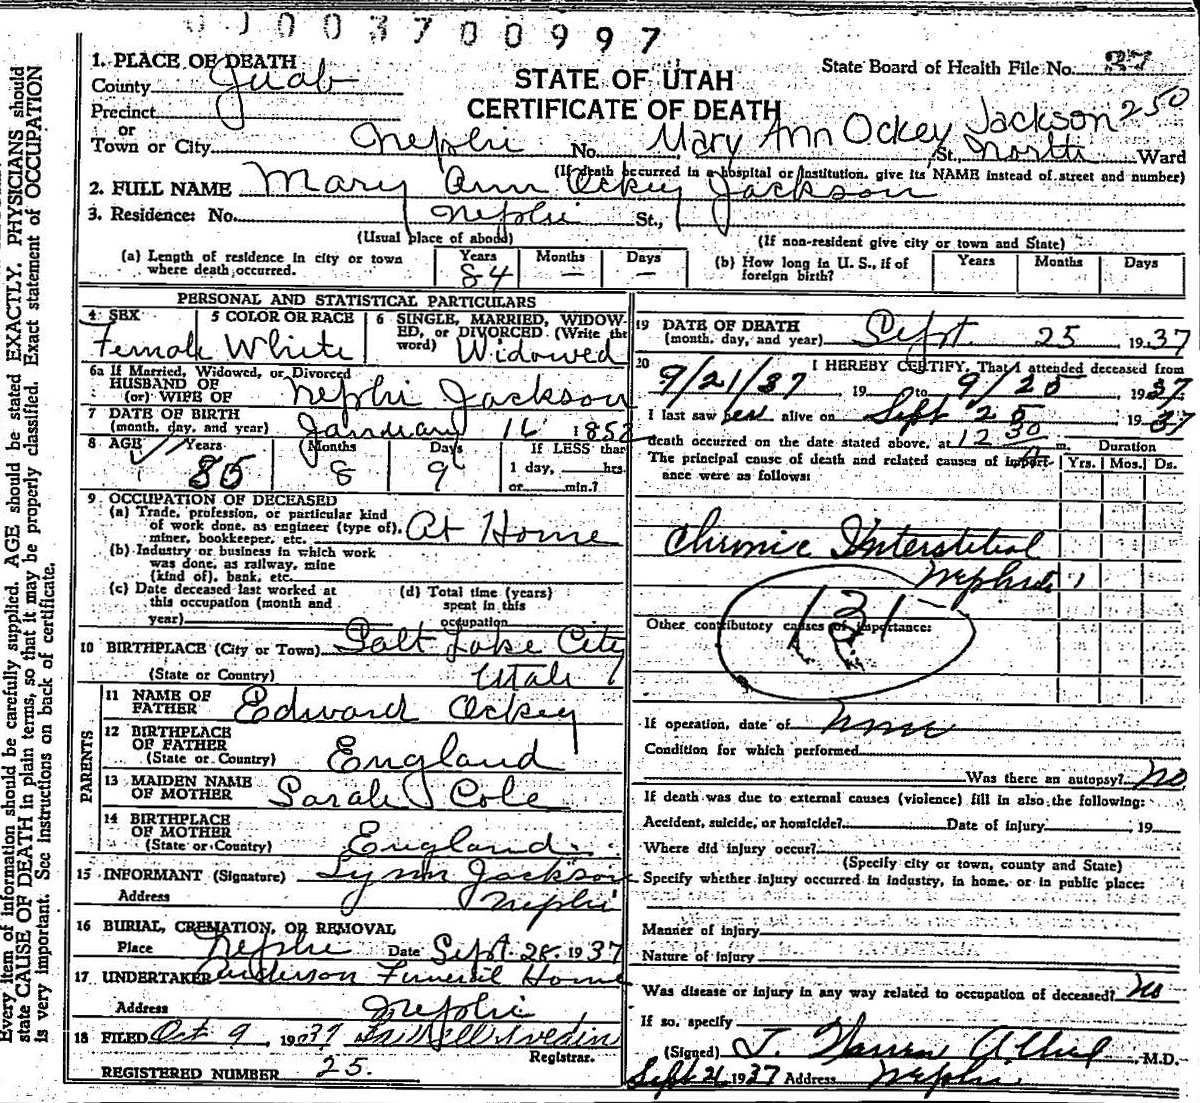 0003700997
1. PLACE OF DEATH
County Juab
STATE OF UTAH
State Board of Health File No. 37
CERTIFICATE OF DEATH
Precinct
or
Town or City Nephi No. Mary Ann Ockey Jackson 250 St., North Ward
(If death occurred in a hospital or institution, give its NAME instead of street and number)
2. FULL NAME Mary Ann Ockey Jackson
3. Residence: No. Nephi St.,
(Usual place of abode) (If non-resident give city or town and State)
(a) Length of residence in city or town where death occurred. Years 84 Months — Days —
(b) How long in U. S., if of foreign birth? Years Months Days
PERSONAL AND STATISTICAL PARTICULARS
4 SEX 5 COLOR OR RACE 6 SINGLE, MARRIED, WIDOWED, or DIVORCED. (Write the word)
Female White Widowed
6a If Married, Widowed, or Divorced
HUSBAND OF
(or) WIFE OF Nephi Jackson
7 DATE OF BIRTH
(month, day, and year) January 16 1852
8 AGE Years Months Days If LESS than
85 8 9 1 day, hrs.
or min.?
9 OCCUPATION OF DECEASED
(a) Trade, profession, or particular kind
of work done, as engineer (type of),
miner, bookkeeper, etc. At Home
(b) Industry or business in which work
was done, as railway, mine
(kind of), bank, etc.
(c) Date deceased last worked at
this occupation (month and
year)
(d) Total time (years)
spent in this
occupation
10 BIRTHPLACE (City or Town) Salt Lake City
(State or Country) Utah
PARENTS
11 NAME OF
FATHER Edward Ockey
12 BIRTHPLACE
OF FATHER
(State or Country) England
13 MAIDEN NAME
OF MOTHER Sarah Cole
14 BIRTHPLACE
OF MOTHER
(State or Country) England
15 INFORMANT (Signature) Lynn Jackson
Address Nephi
16 BURIAL, CREMATION, OR REMOVAL
Place Nephi Date Sept. 28, 1937
17 UNDERTAKER Anderson Funeral Home
Address Nephi
18 FILED Oct 9 1937
Registrar.
REGISTERED NUMBER 25.
19 DATE OF DEATH
(month, day, and year) Sept. 25 1937
20 I HEREBY CERTIFY, That I attended deceased from
9/21/37 19 to 9/25 1937
I last saw her alive on Sept 25 1937
death occurred on the date stated above, at 12 30 m.
The principal cause of death and related causes of importance were as follows:
Duration
Yrs. Mos. Ds.
Chronic Interstitial
Nephritis
131
Other contributory causes of importance:
If operation, date of none
Condition for which performed
Was there an autopsy? no
If death was due to external causes (violence) fill in also the following:
Accident, suicide, or homicide? Date of injury , 19
Where did injury occur?
(Specify city or town, county and State)
Specify whether injury occurred in industry, in home, or in public place:
Manner of injury
Nature of injury
Was disease or injury in any way related to occupation of deceased? No
If so, specify
(Signed) M.D.
Sept 26 1937 Address Nephi
Every item of information should be carefully supplied. AGE should be stated EXACTLY. PHYSICIANS should
state CAUSE OF DEATH in plain terms, so that it may be properly classified. Exact statement of OCCUPATION
is very important. See instructions on back of certificate.